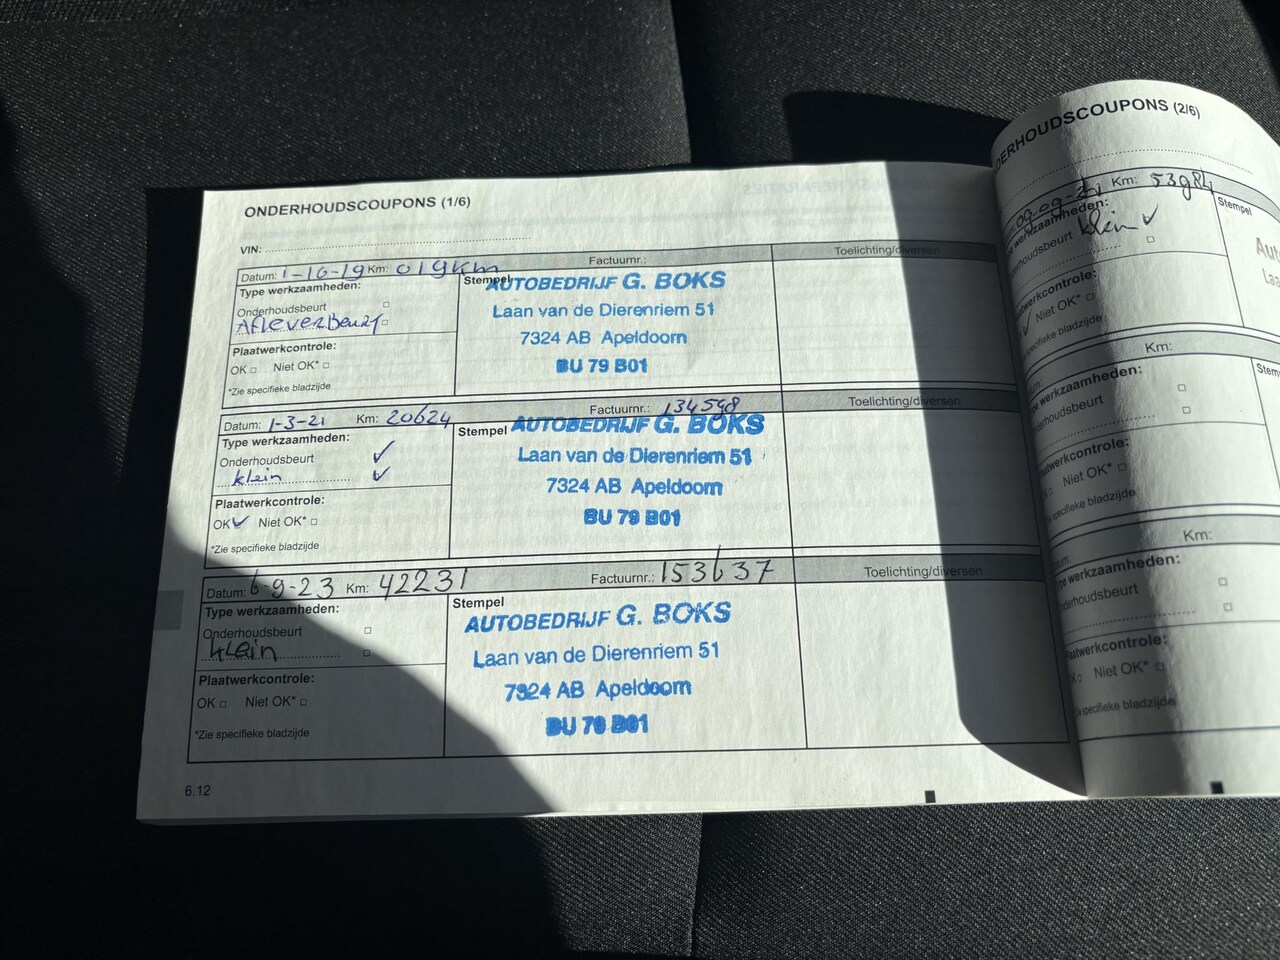 ONDERHOUDSCOUPONS (1/6)
VIN:
Datum: 1-10-19 Km: 019km Factuurnr.: Toelichting/diversen
Type werkzaamheden:
Onderhoudsbeurt
Afleverbeurt
Plaatwerkcontrole:
OK Niet OK*
*Zie specifieke bladzijde
Stempel
AUTOBEDRIJF G. BOKS
Laan van de Dierenriem 51
7324 AB Apeldoorn
BU 79 B01
Datum: 1-3-21 Km: 20624 Factuurnr.: 134598 Toelichting/diversen
Type werkzaamheden:
Onderhoudsbeurt ✓
klein ✓
Plaatwerkcontrole:
OK ✓ Niet OK*
*Zie specifieke bladzijde
Stempel
AUTOBEDRIJF G. BOKS
Laan van de Dierenriem 51
7324 AB Apeldoorn
BU 79 B01
Datum: 6-9-23 Km: 42231 Factuurnr.: 153637 Toelichting/diversen
Type werkzaamheden:
Onderhoudsbeurt
klein
Plaatwerkcontrole:
OK Niet OK*
*Zie specifieke bladzijde
Stempel
AUTOBEDRIJF G. BOKS
Laan van de Dierenriem 51
7324 AB Apeldoorn
BU 79 B01
6.12
DERHOUDSCOUPONS (2/6)
Km: 53984
werkzaamheden:
nderhoudsbeurt klein ✓
Niet OK*
specifieke bladzijde
Stempel
Aut
Laa
Km:
ype werkzaamheden:
nderhoudsbeurt
Niet OK*
specifieke bladzijde
Stem
Km:
ype werkzaamheden:
nderhoudsbeurt
laatwerkcontrole:
Niet OK*
specifieke bladzijde